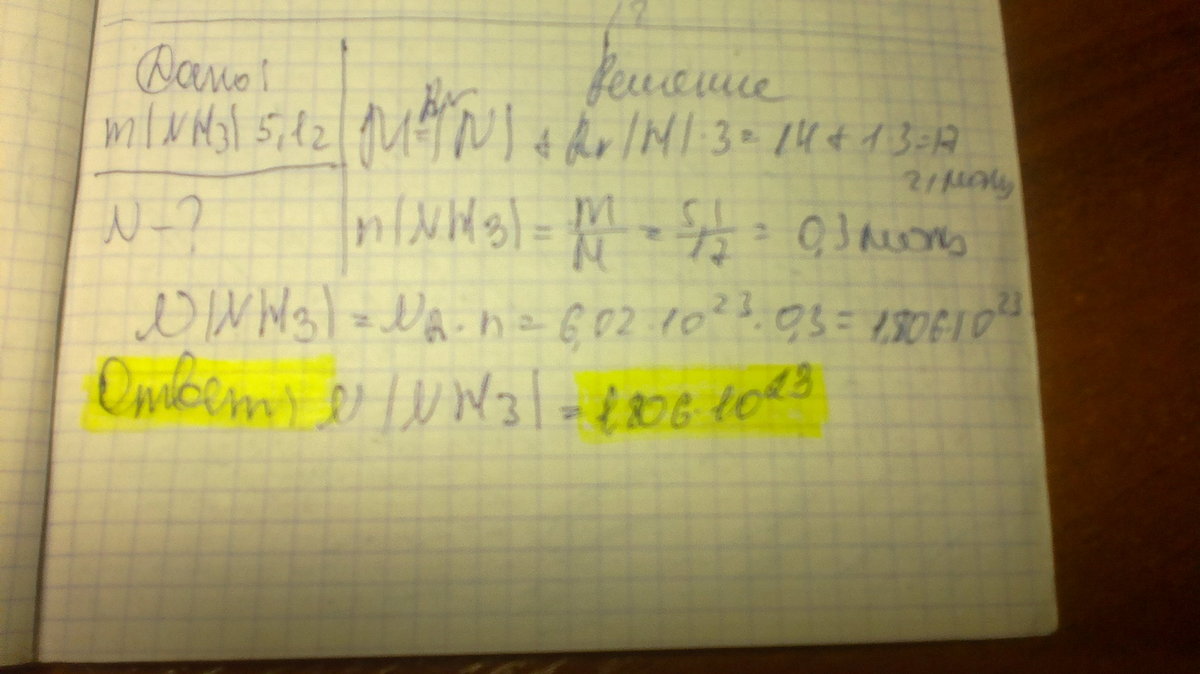 Дано: Решение
m(NH3) 5,1г M=Ar(N) + Ar(H)·3=14+1·3=17
г/моль
N-? n(NH3)=m/M=5,1/17=0,3 моль
N(NH3)=NA·n=6,02·10²³·0,3=1,806·10²³
Ответ: N(NH3)=1,806·10²³